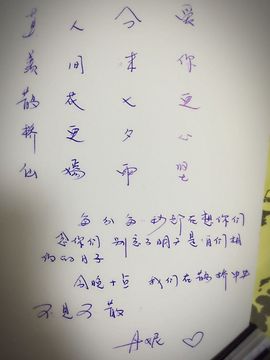 真 人 今 爱
美 间 来 你
鹊 花 七 更
桥 更 夕 心
仙 嫣 雨 坚
每分每秒都在想你们
念你们 别忘了明天是咱们相
约的日子
今晚十点 我们在鹊桥中央
不见不散
丹妮